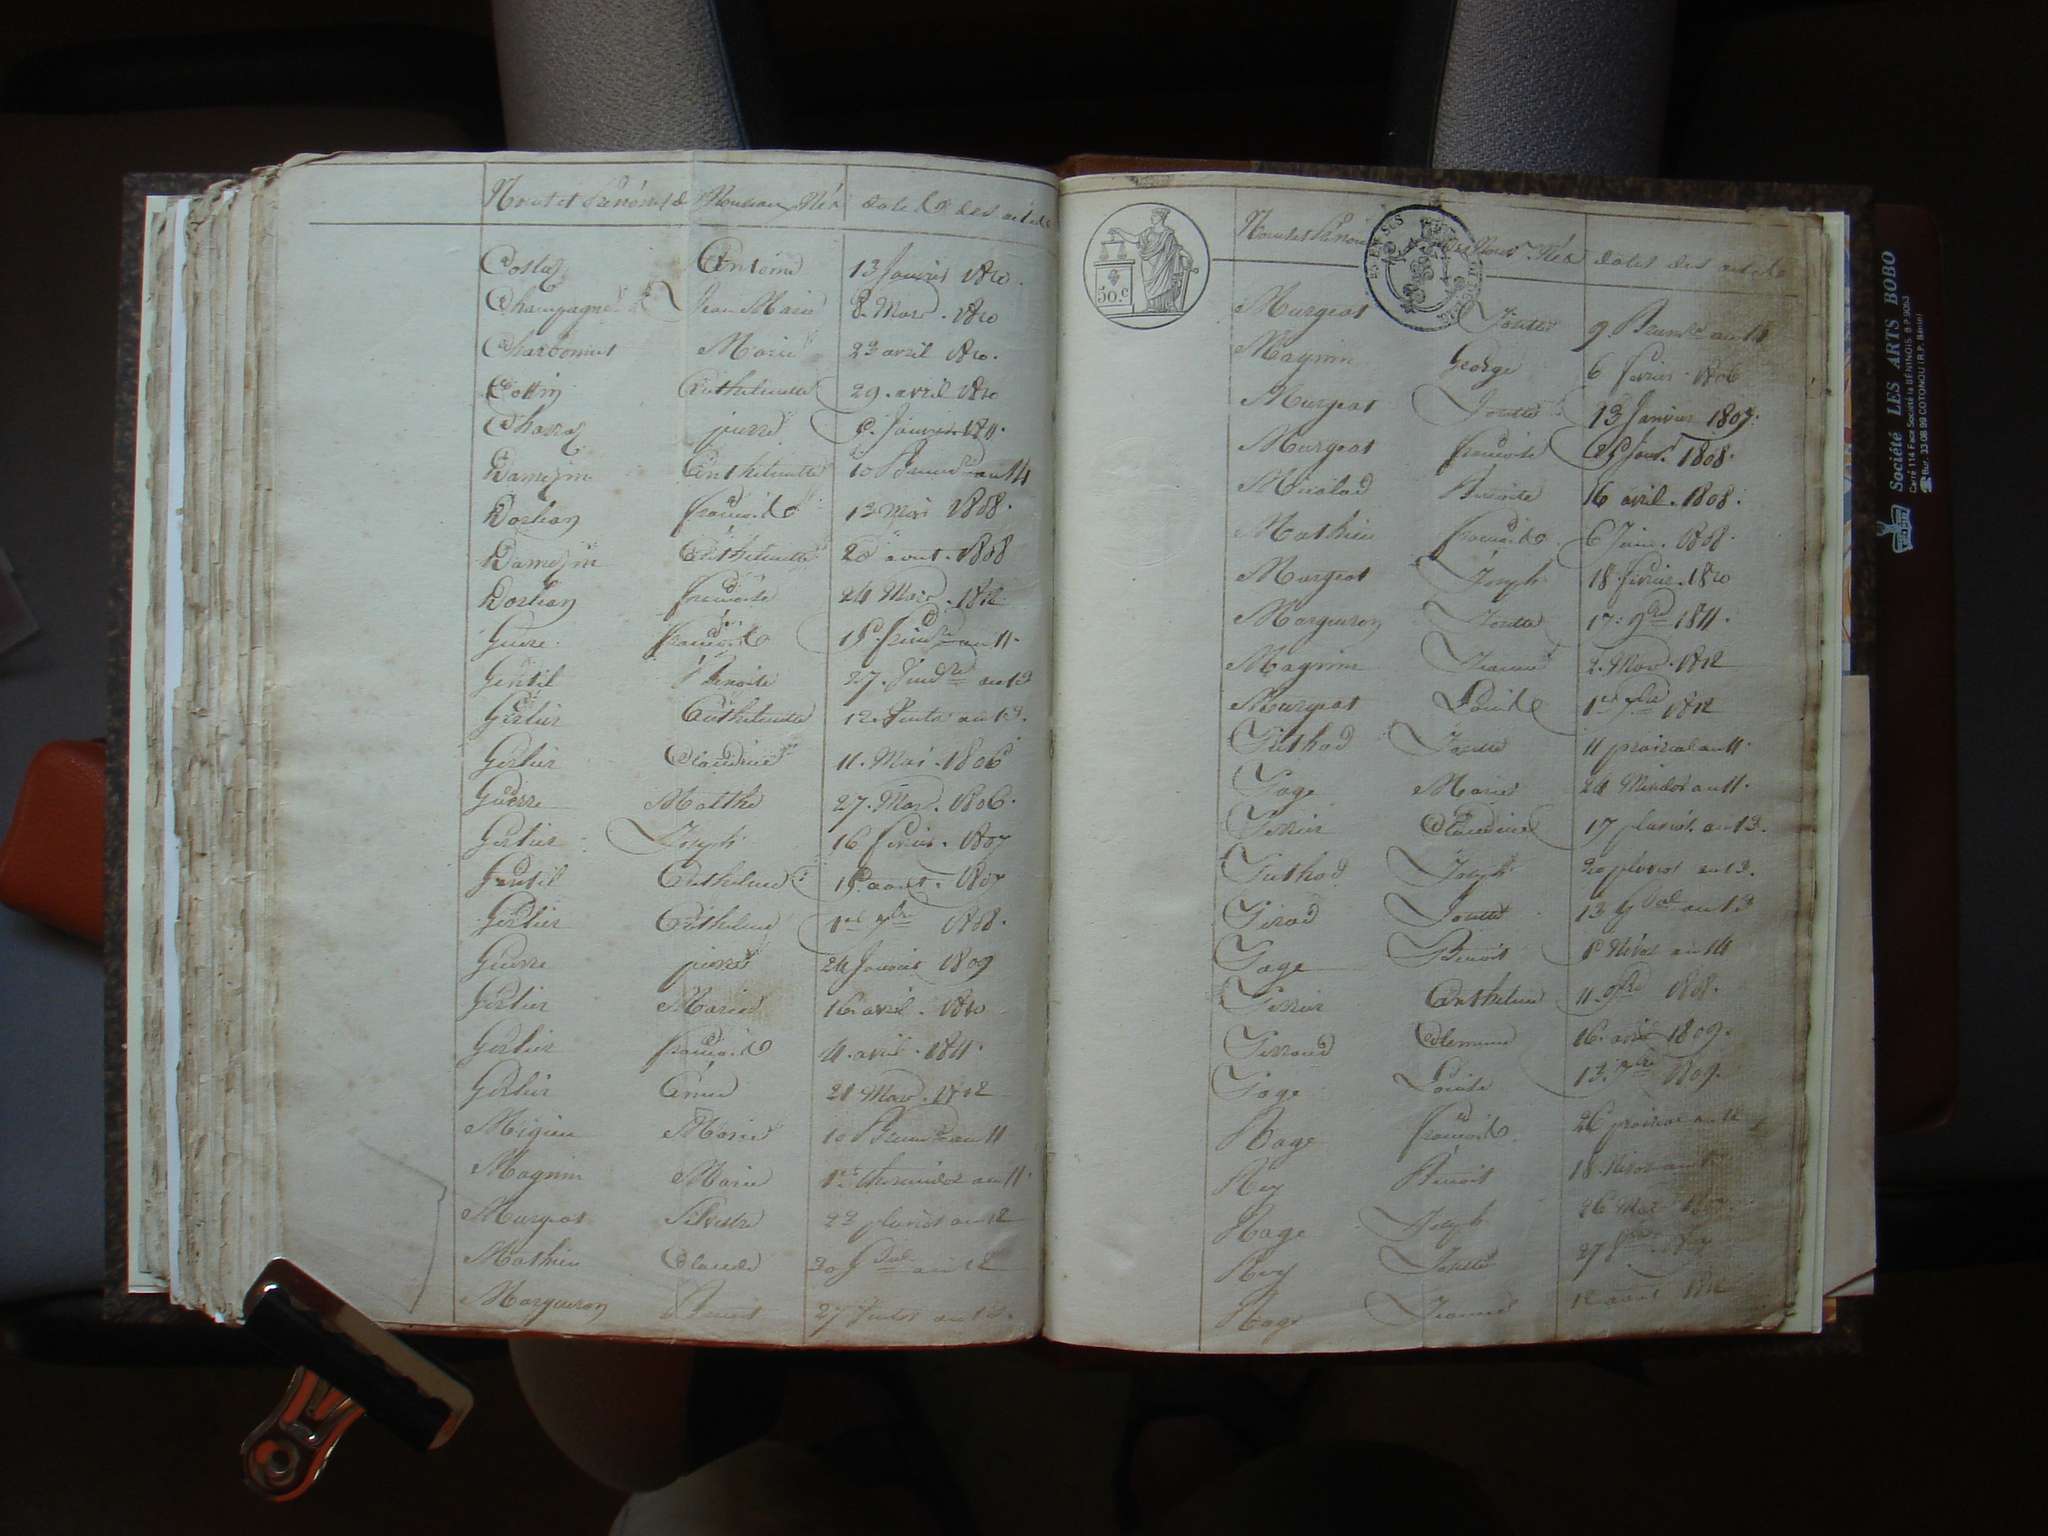 Noms et Prénoms des Nouveaux Nés dates des actes
Costaz Antoine 13 Janvier 1810.
Champagne Jean Marie 8. Mars. 1810
Charbonnet Marie 23 avril 1810.
Cottin Anthelmette 29. avril 1810
Charvaz pierre Janvier. 1811.
Damezin Anthelmette 10 Brumre an 14
Dorhan françoise 13 Mai 1808.
Damezin Anthelmette 20 aout. 1808
Dorhan françoise 24 Mars. 1812
Guerre. françoise frimre an 11.
Gentil Benoite 27. an 13
Gerlier Anthelmette 12. Ventose an 13.
Gerlier Claudine 11. Mai. 1806
Guerre Matthé 27. Mars. 1806.
Gerlier Joseph 16 février. 1807
Gentil Anthelme aout. 1807
Gerlier Anthelme 1er 7bre 1808.
Guerre pierre 24 Janvier 1809
Gerlier Marie 16. avril. 1810
Gerlier françoise 4. avril. 1811.
Gerlier 28 Mars. 1812
Migieu Marie 10 Brumre an 11
Magnin Marie thermidor an 11.
Murgeat Silvestre 23 pluviôse an 12
Mathieu Claude an 12
Margueron Benoit 27
50.c
Noms et Prénoms des Nouv. Nés dates des actes
Murgeat Josette 9. Brumre an 14
Magnin George 6 février. 1806
Murgeat Josette 13 Janvier 1807.
Murgeat françoise Janv. 1808.
Micalod Benoite 16 avril. 1808.
Mathieu françoise 6 Juin. 1808.
Murgeat Joseph 18 février. 1810
Margueron Josette 17. 9bre 1811.
Magnin Jeanne 2. Mars. 1812
Murgeat Louise 1er 7bre 1812
Puthod Josette 11 prairial an 11.
Page Marie 24 Messidor an 11.
Perrier Claudine 17 pluviôse an 13.
Puthod Joseph 20 pluviôse an 13.
Pirod Josette 13 an 13
Page Benoit Nivôse an 14
Perrier Anthelme 11. 9bre 1808.
Perroud Clemence 16. avril 1809.
Page Louise 13. 7bre 1809.
Rage françoise prairial an 12
Rey Benoit 18. Nivôse an
Rage Joseph 26 Mars
Rey Josette 27
Rage Jeanne 12 aout 1812
Société LES ARTS BOBO
Carré 114 Face Société la BÉNINOIS. B.P. 9053
Bur. 33 08 99 COTONOU (R.P. Bénin)